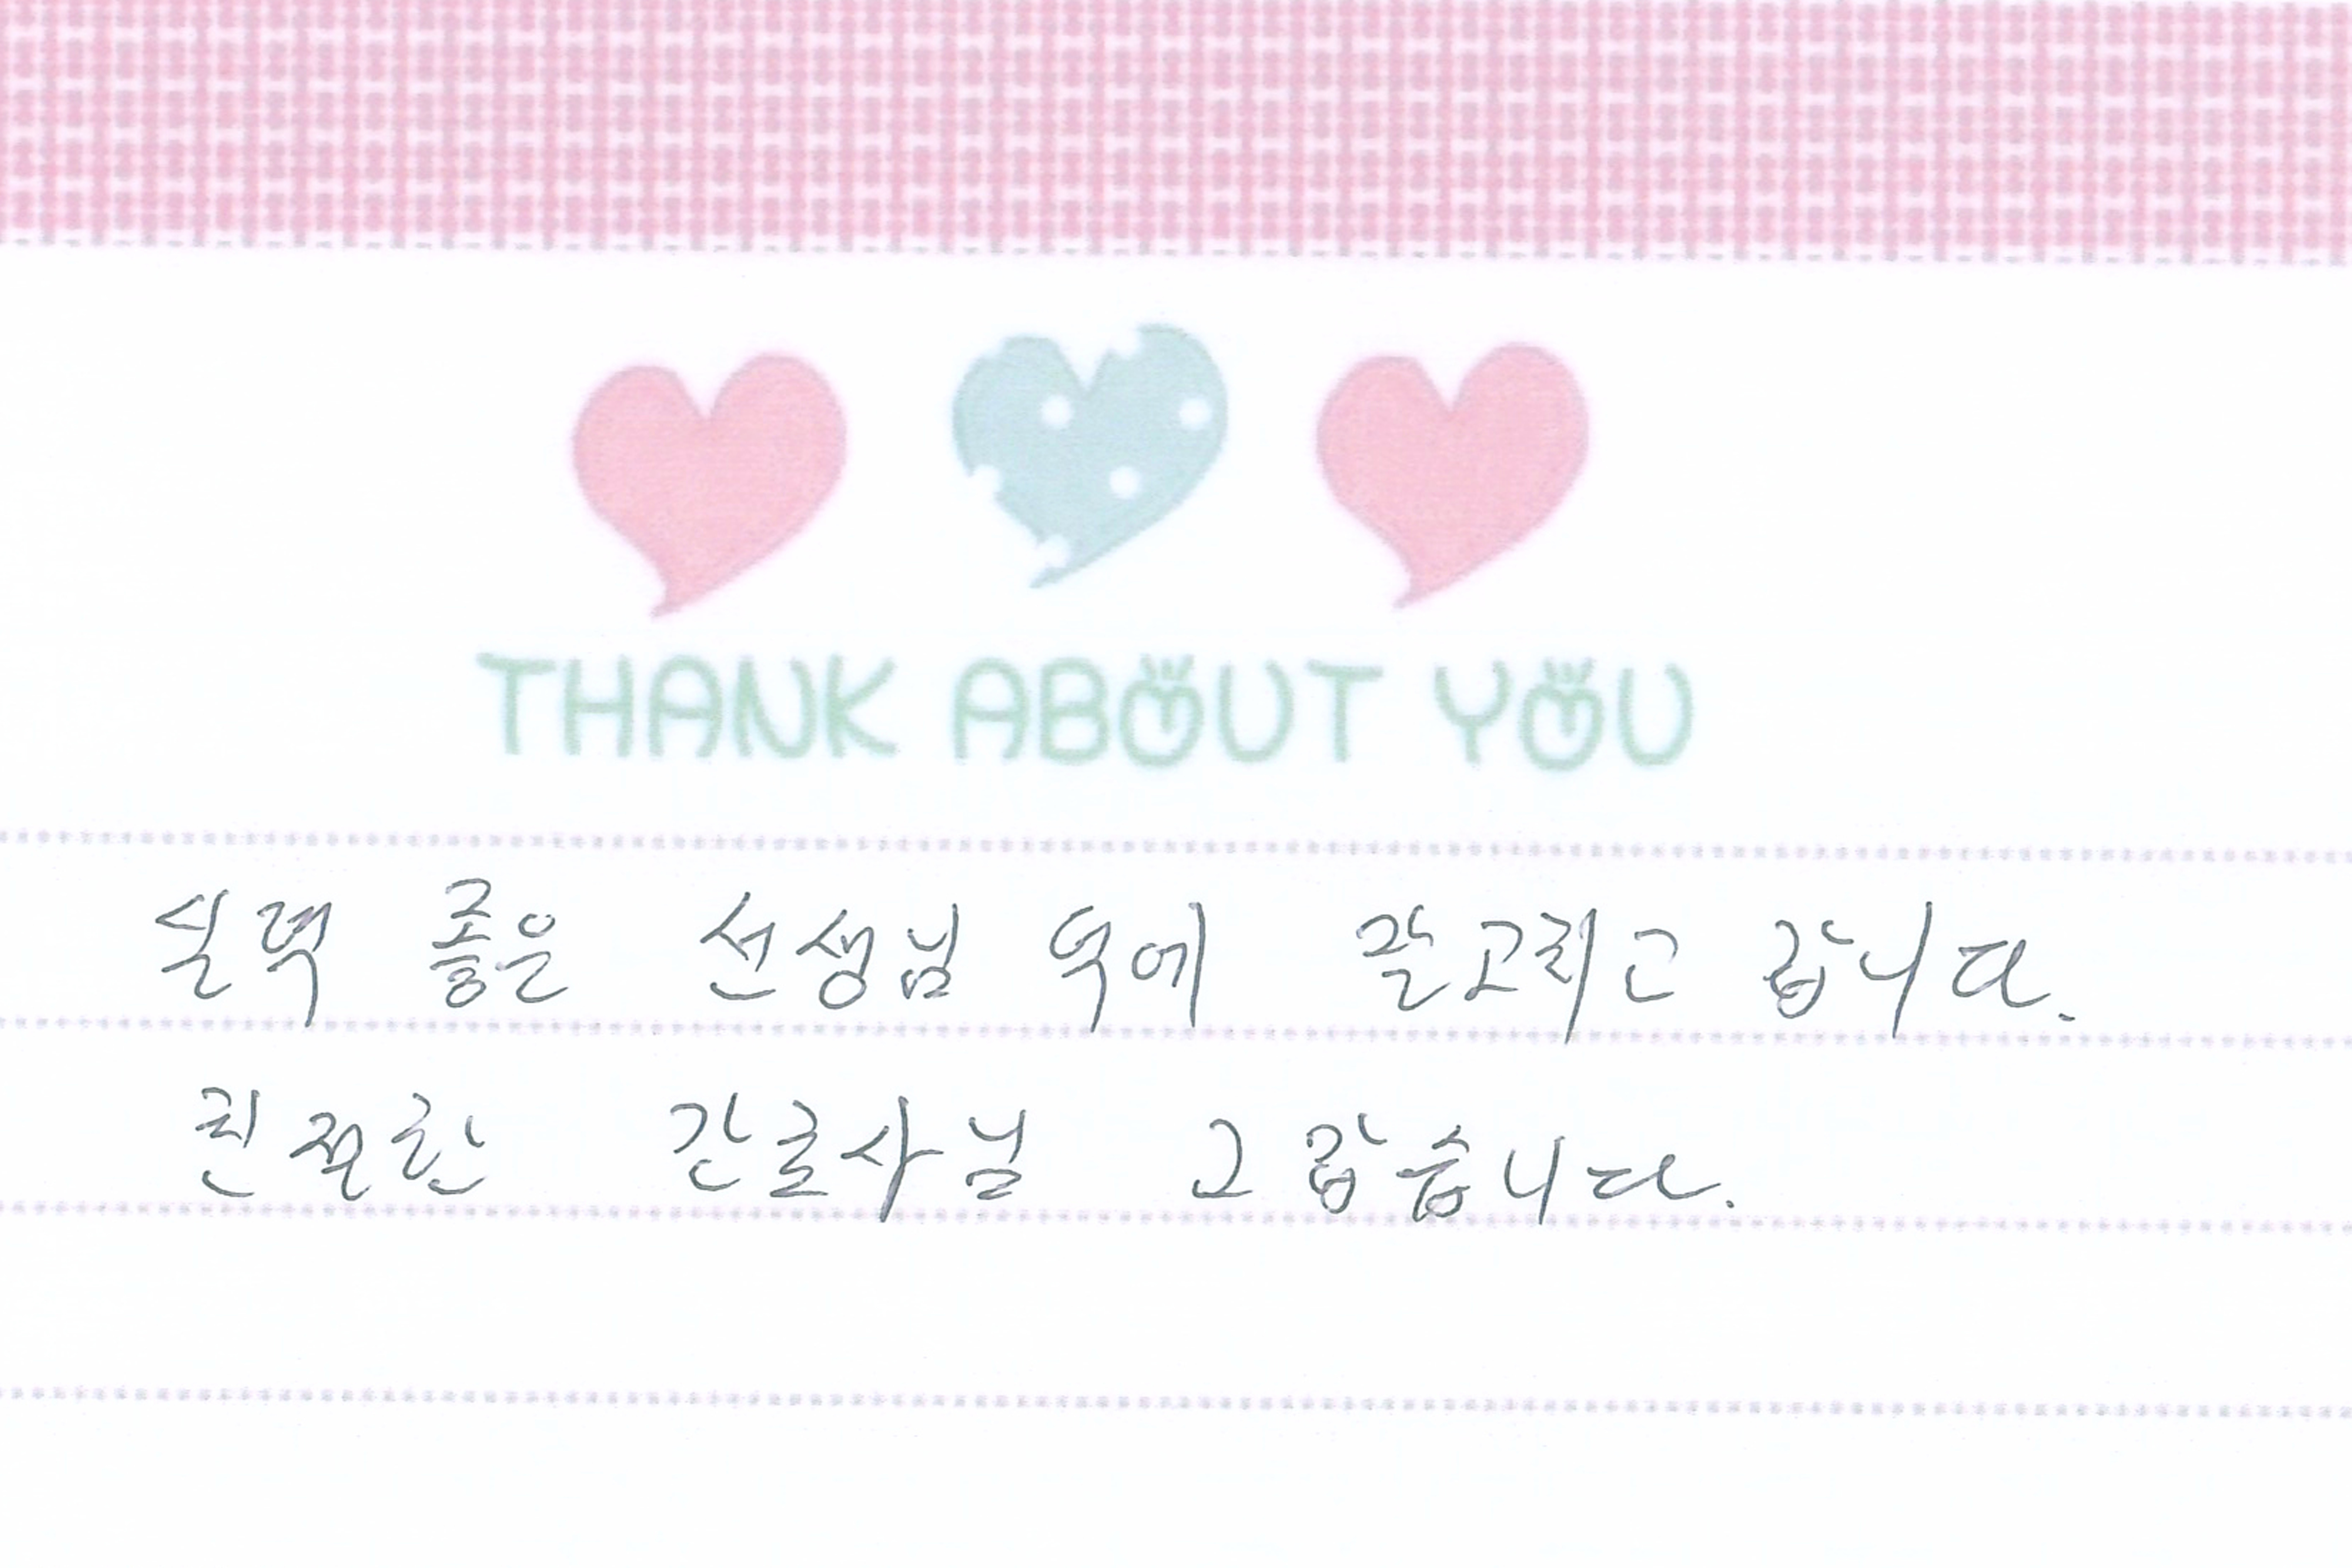 THANK ABOUT YOU
실력 좋은 선생님 덕에 잘 고치고 갑니다.
친절한 간호사님 고맙습니다.